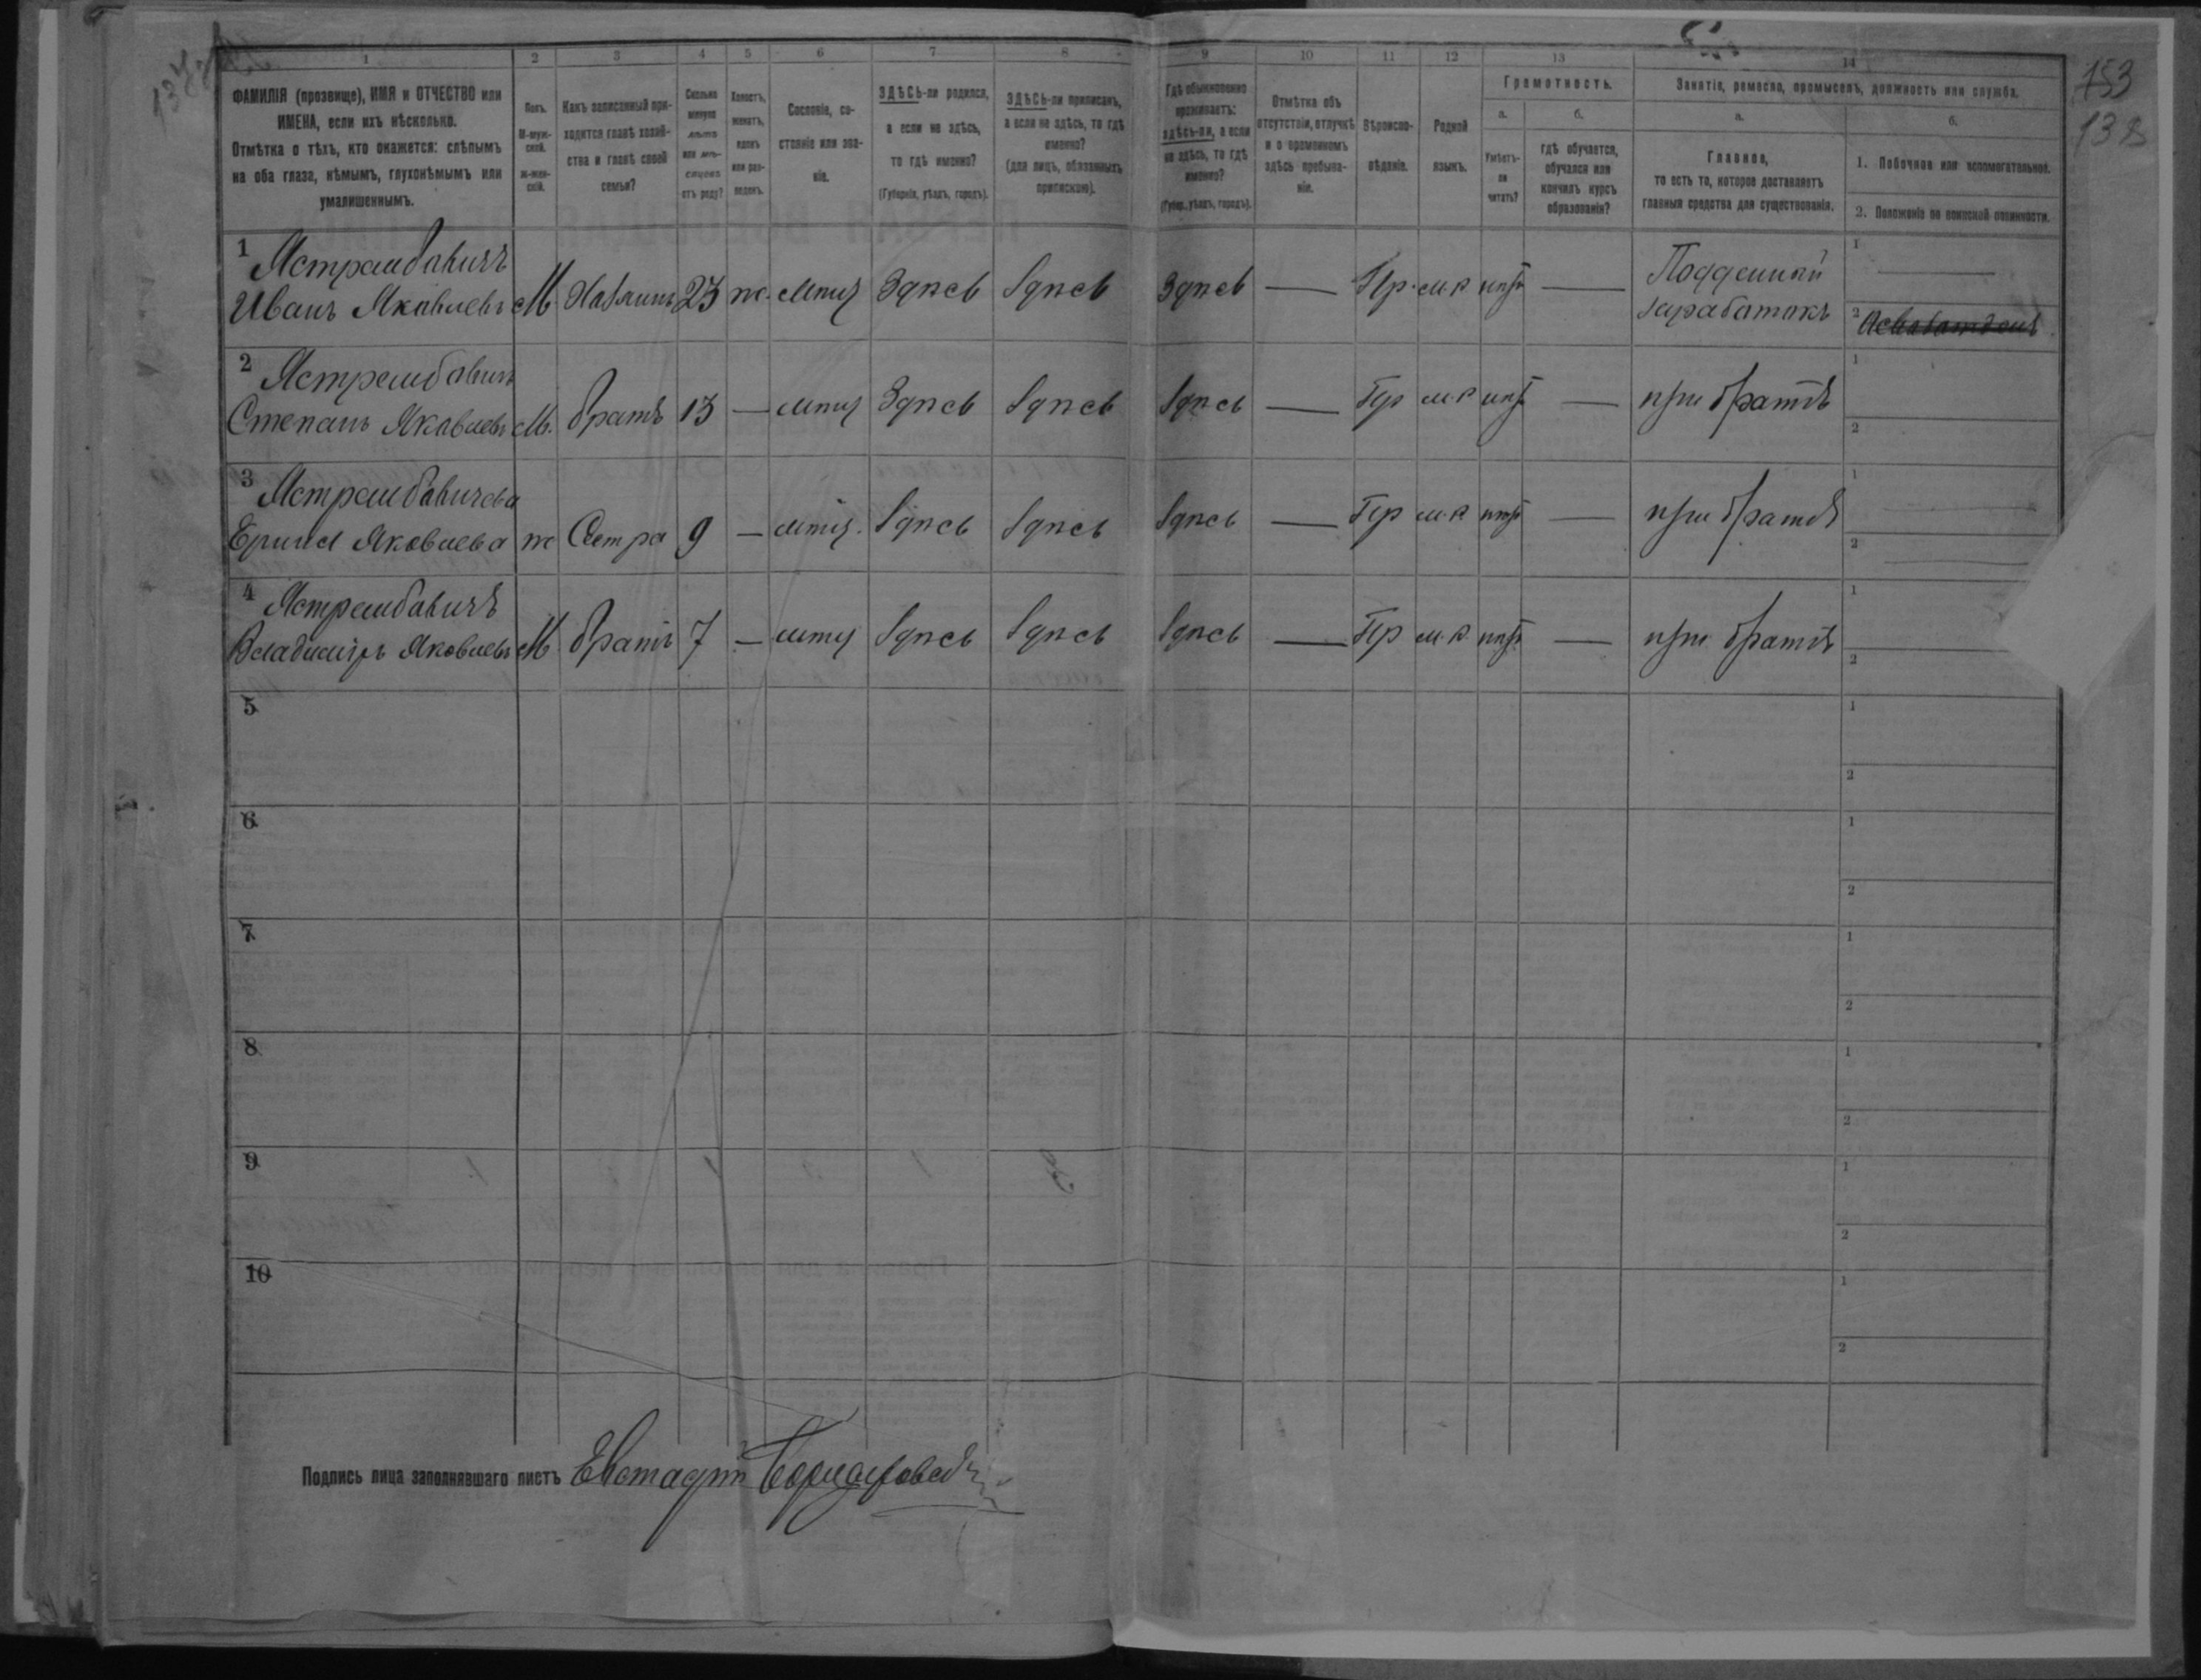 153
138
1 2 3 4 5 6 7 8 9 10 11 12 13 14
ФАМИЛІЯ (прозвище), ИМЯ и ОТЧЕСТВО или
ИМЕНА, если ихъ нѣсколько.
Отмѣтка о тѣхъ, кто окажется: слѣпымъ
на оба глаза, нѣмымъ, глухонѣмымъ или
умалишеннымъ.
Полъ.
М-муж-
ской.
Ж-жен-
скій.
Какъ записанный при-
ходится главѣ хозяй-
ства и главѣ своей
семьи?
Сколько
минуло
лѣтъ
или мѣ-
сяцевъ
отъ роду?
Холостъ,
женатъ,
вдовъ
или раз-
веденъ.
Сословіе, со-
стояніе или зва-
ніе.
ЗДѢСЬ-ли родился,
а если не здѣсь,
то гдѣ именно?
(Губернія, уѣздъ, городъ).
ЗДѢСЬ-ли приписанъ,
а если не здѣсь, то гдѣ
именно?
(для лицъ, обязанныхъ
припискою).
Гдѣ обыкновенно
проживаетъ:
здѣсь-ли, а если
не здѣсь, то гдѣ
именно?
(Губер., уѣздъ, городъ).
Отмѣтка объ
отсутствіи, отлучкѣ
и о временномъ
здѣсь пребыва-
ніи.
Вѣроиспо-
вѣданіе.
Родной
языкъ.
Грамотность.
а.
Умѣетъ-
ли
читать?
б.
гдѣ обучается,
обучался или
кончилъ курсъ
образованія?
Занятіе, ремесло, промыселъ, должность или служба.
а.
Главное,
то есть то, которое доставляетъ
главныя средства для существованія.
б.
1. Побочное или вспомогательное.
2. Положеніе по воинской повинности.
1 Ястрамбавичъ
Иванъ Якавлевъ М. Хазяинъ 23 ж. Здпсь Здпсь Здпсь — Пр. м.р — Подденный
заработакъ
2 Ястрамбавичъ
Степанъ Якавлевъ М. братъ 13 — Здпсь Здпсь Здпсь — Пр м.р — при братѣ
3 Ястрамбавичева
Ерина Яковлева ж Сестра 9 — Здпсь Здпсь Здпсь — Пр м.р — при братѣ
4 Ястрамбавичъ
Владиміръ Яковлевъ М братъ 7 — Здпсь Здпсь Здпсь — Пр м.р. — при братѣ
5
6
7
8
9
10
Подпись лица заполнявшаго листъ Евстафій